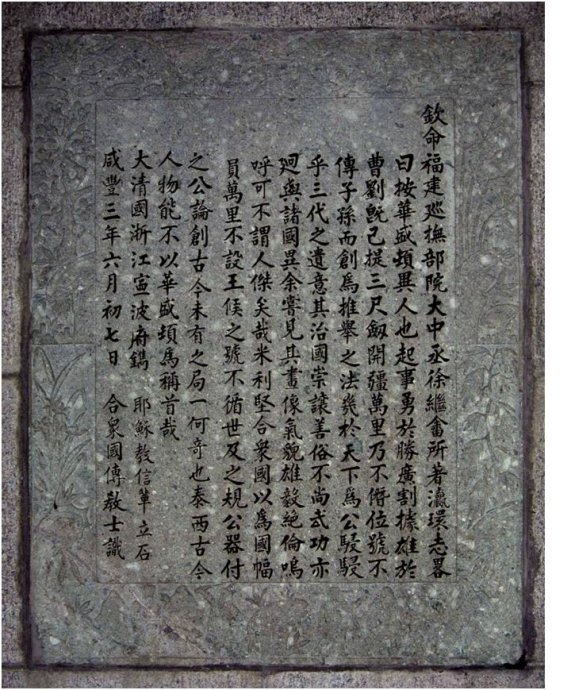 欽命福建巡撫部院大中丞徐繼畬所著瀛環志畧
曰按華盛頓異人也起事勇於勝廣割據雄於
曹劉既已提三尺劔開疆萬里乃不僭位號不
傳子孫而創為推舉之法幾於天下為公駸駸
乎三代之遺意其治國崇讓善俗不尚武功亦
迥與諸國異余嘗見其畫像氣貌雄毅絕倫嗚
呼可不謂人傑矣哉米利堅合衆國以為國幅
員萬里不設王侯之號不循世及之規公器付
之公論創古今未有之局一何奇也泰西古今
人物能不以華盛頓為稱首哉
大清國浙江寧波府鐫 耶穌教信輩立石
咸豐三年六月初七日 合衆國傳教士識